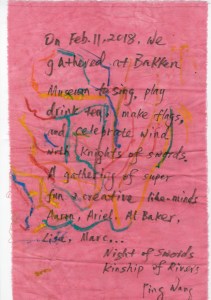 On Feb. 11, 2018. We
gathered at Bakken
Museum to sing, play
drink tea, make flags,
and celebrate wind
with Knights of swords.
A gathering of super
fun & creative like-minds
Aaron, Ariel, Al Baker,
Marc...
Night of Swords
Kinship of Rivers
Ping Wang